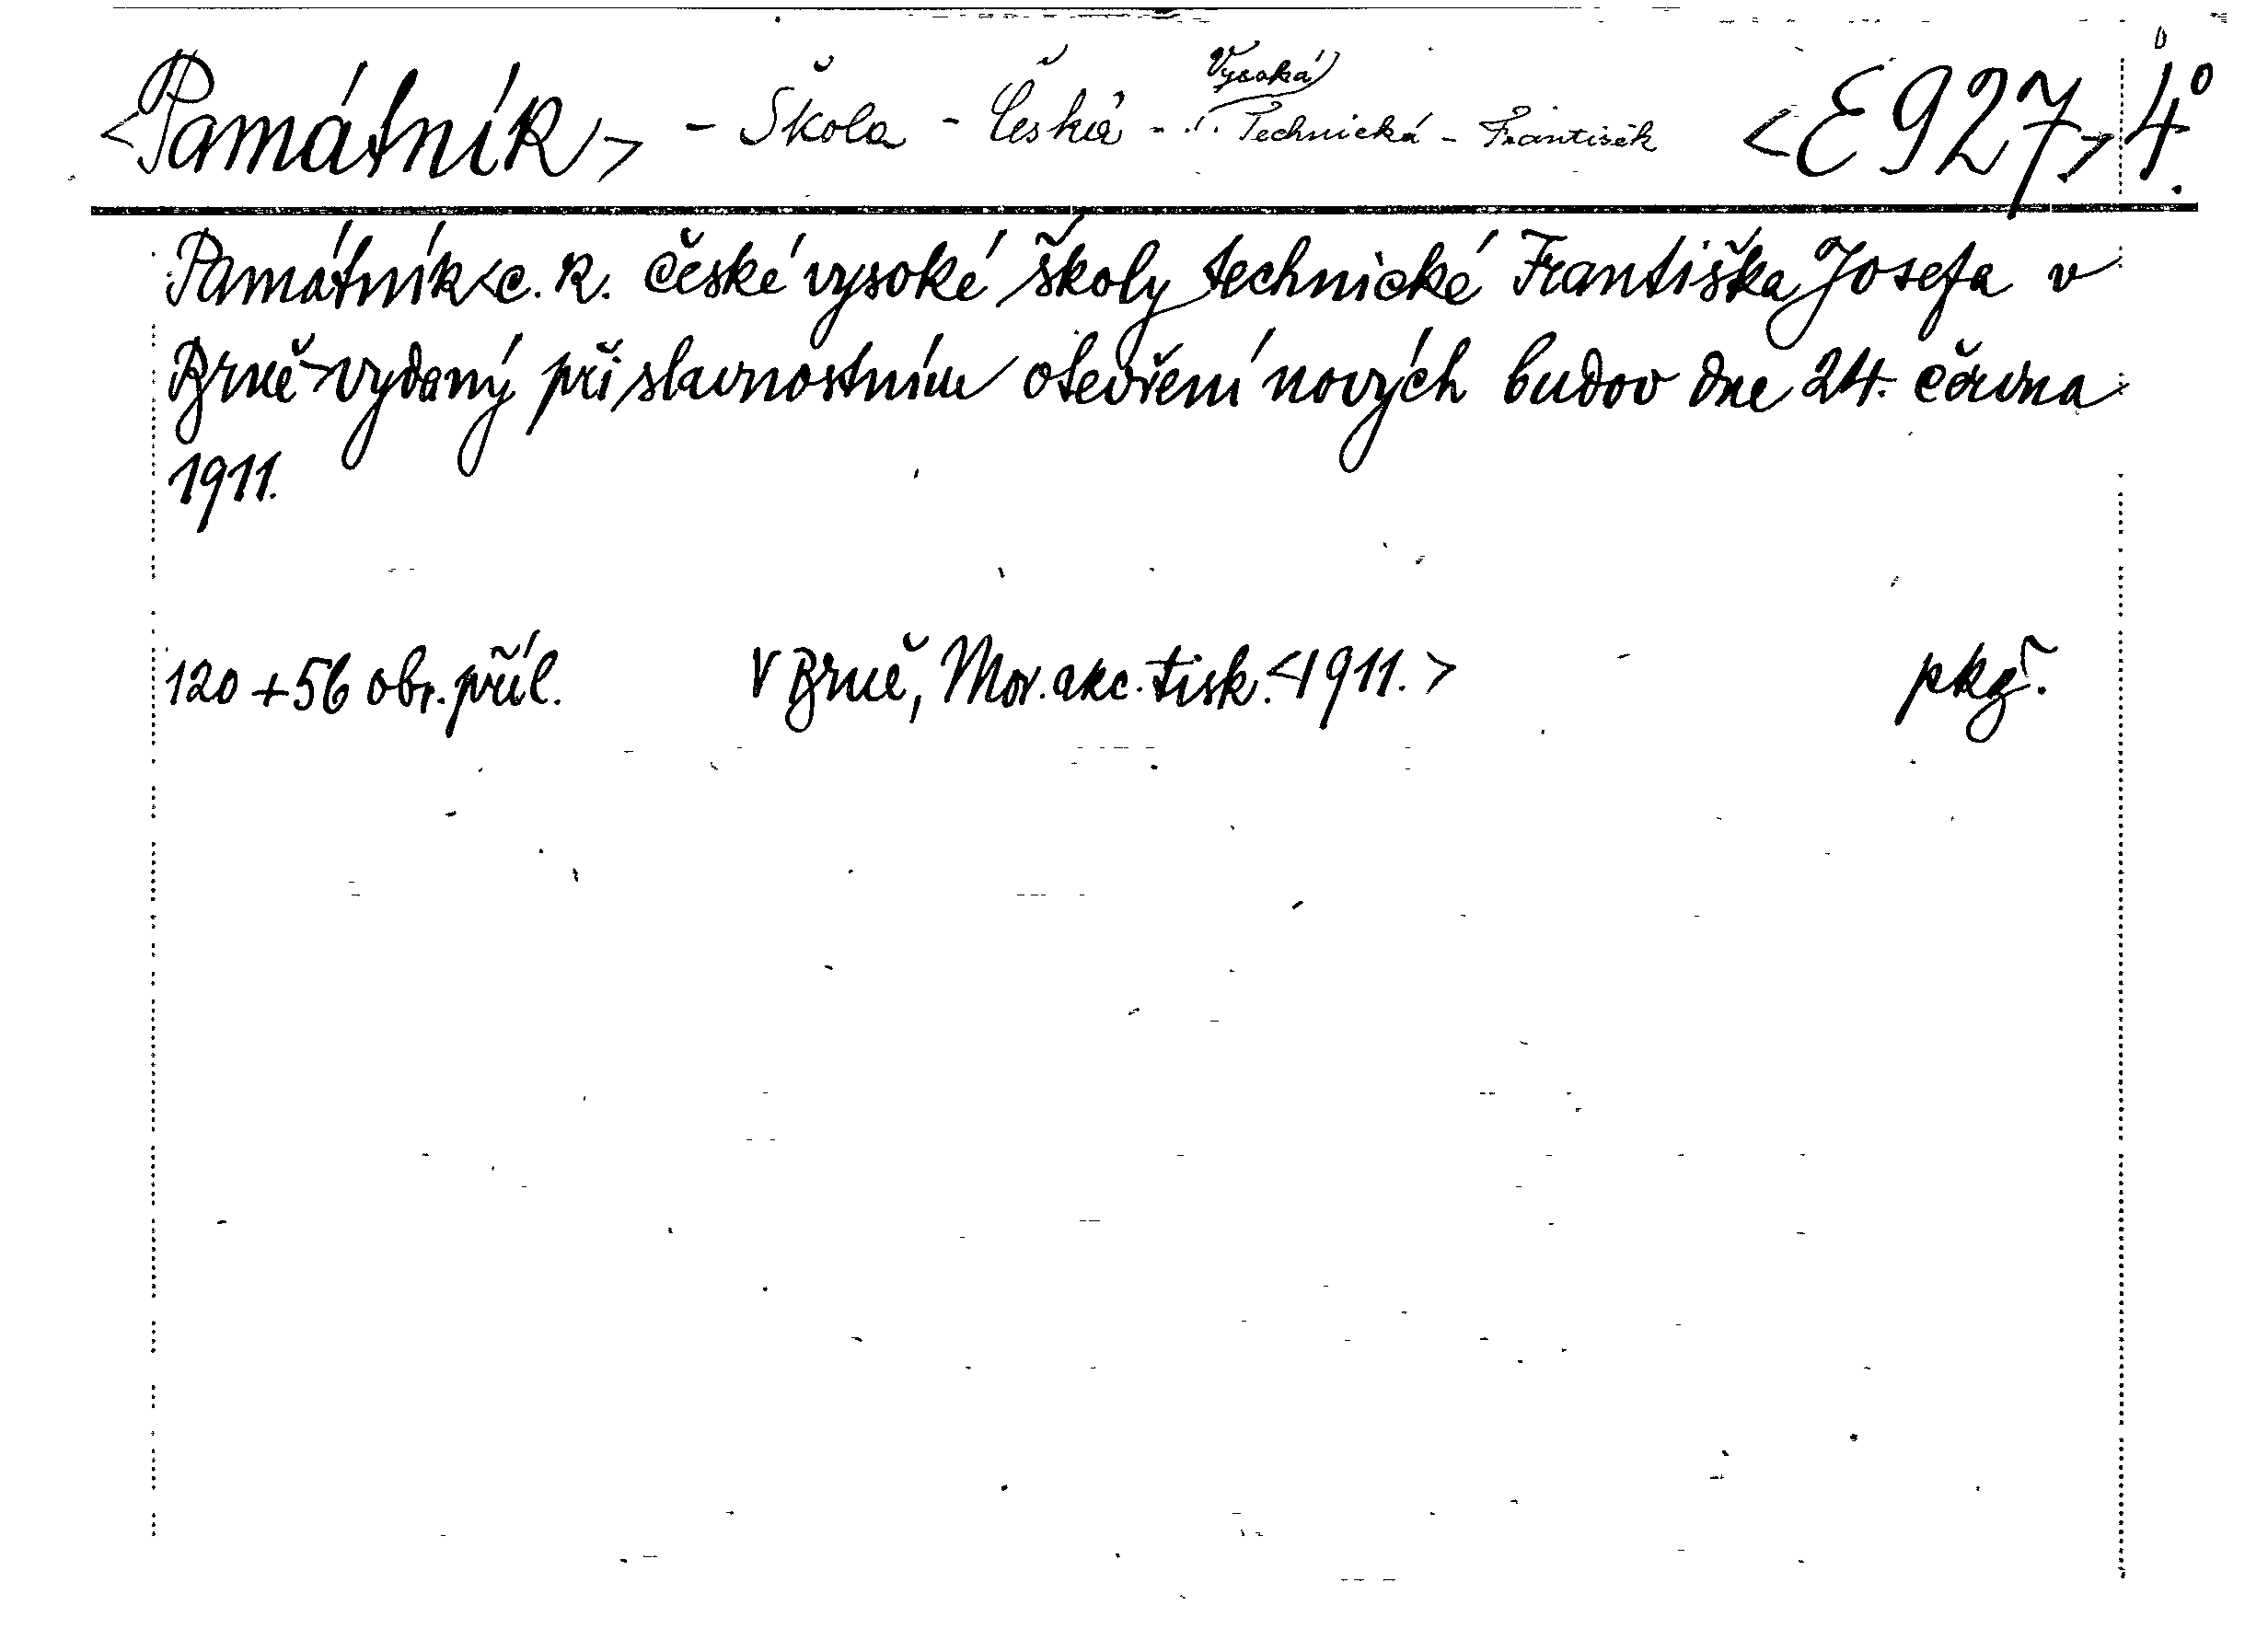 <Památník> - Škola - Česká - Vysoká Technická - František <E 927> 4°.
Památník <c. k. české vysoké školy technické Františka Josefa v
Brně> vydaný při slavnostním otevření nových budov dne 24. června
1911.
120 + 56 obr. příl. V Brně, Mor. akc. tisk. <1911.>